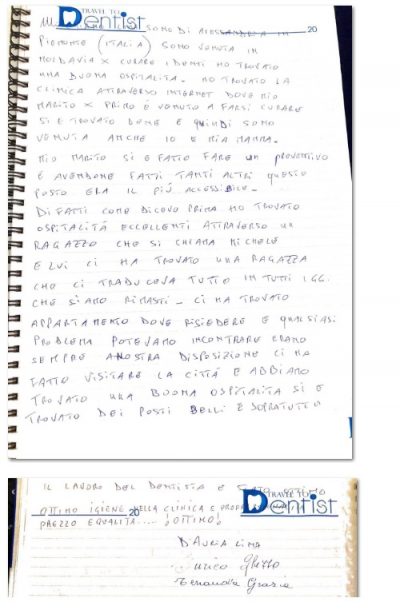 TRAVEL TO
Dentist
20
SONO DI ALESSANDRIA IN
PIEMONTE (ITALIA) SONO VENUTA IN
MOLDAVIA X CURARE I DENTI HO TROVATO
UNA BUONA OSPITALITA. HO TROVATO LA
CLINICA ATTRAVERSO INTERNET DOVE MIO
MARITO X PRIMO É VENUTO A FARSI CURARE
SI E TROVATO BENE E QUINDI SONO
VENUTA ANCHE IO E MIA MAMMA.
MIO MARITO SI E FATTO FARE UN PREVENTIVO
E AVENDONE FATTI TANTI ALTRI QUESTO
POSTO ERA IL PIÚ ACCESSIBILE.
DI FATTI COME DICEVO PRIMA HO TROVATO
OSPITALITÁ ECCELLENTI ATTRAVERSO UN
RAGAZZO CHE SI CHIAMA MICHELE
E LUI CI HA TROVATO UNA RAGAZZA
CHE CI TRADUCEVA TUTTO IN TUTTI I GG.
CHE SIAMO RIMASTI - CI HA TROVATO
APPARTAMENTO DOVE RISIEDERE E QUALSIASI
PROBLEMA POTEVAMO INCONTRARE ERANO
SEMPRE A NOSTRA DISPOSIZIONE CI HA
FATTO VISITARE LA CITTÁ E ABBIAMO
TROVATO UNA BUONA OSPITALITA SI E
TROVATO DEI POSTI BELLI E SOPRATUTTO
IL LAVORO DEL DENTISTA E STATO OTTIMO
TRAVEL TO
Dentist
20
OTTIMO IGIENE NELLA CLINICA E
PREZZO EQUALITA.... OTTIMO!
D'AURIA LINA